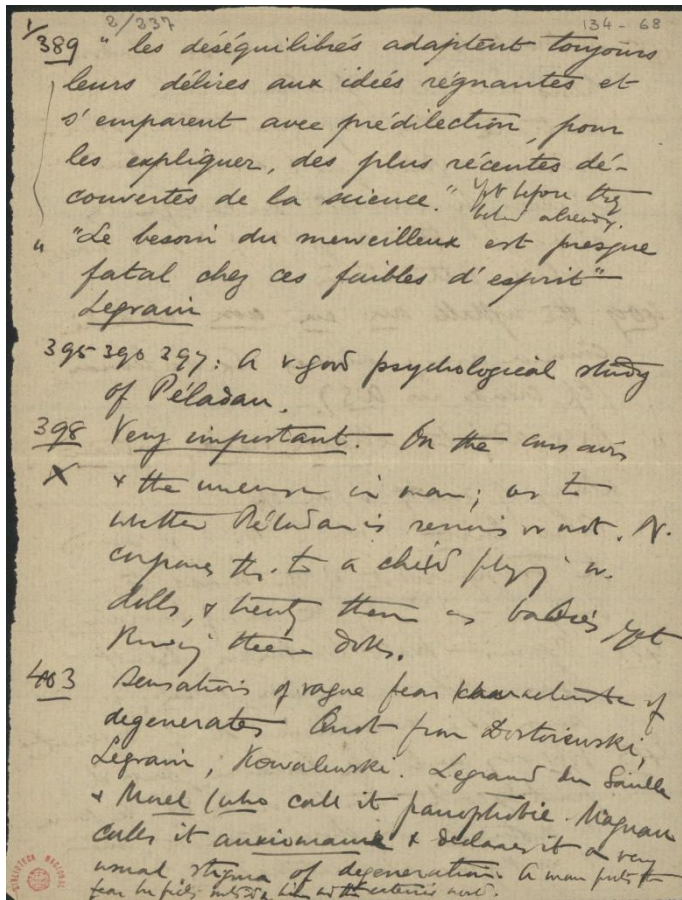 1/ 2/237 134-68
389 " les déséquilibrés adaptent toujours
leurs délires aux idées régnantes et
s'emparent avec prédilection, pour
les expliquer, des plus récentes dé-
couvertes de la science." Yet before they
already.
" "Le besoin du merveilleux est presque
fatal chez ces faibles d'esprit"
Legrain
395 390 397: A v. good psychological study
of Péladan.
398 Very important. On the
X & the in man; as to
whether Péladan is or not. N.
compares this to a child playing w.
dolls, & treating them as babies yet
knowing them dolls.
403 Sensations of vague fear characteristic of
degenerates Quot from Dostoieuski,
Legrain, Kowalewski. Legrand du Saulle
& Morel (who call it panophobie. Magnan
calls it anxiomanie & declares it a very
usual stigma of degeneration. A man puts the
fear he feels outside him in the exterior world.
BIBLIOTECA NACIONAL